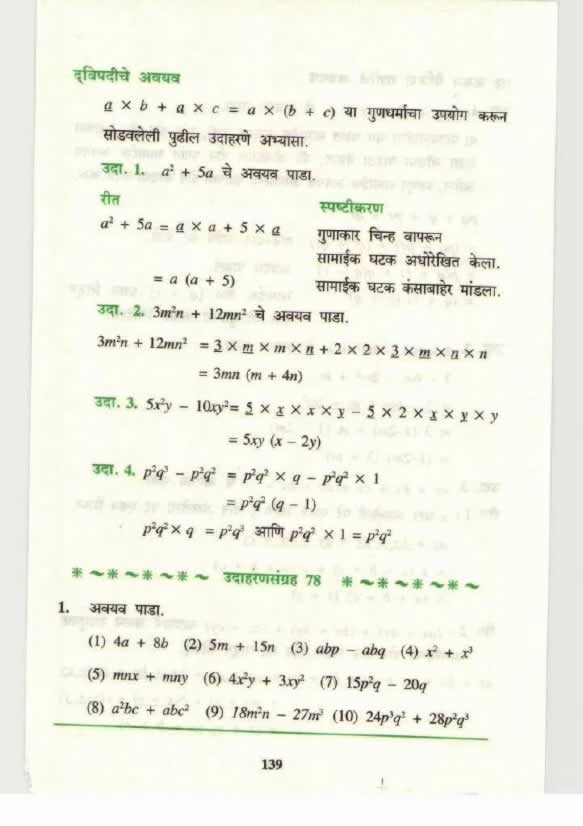 द्विपदीचे अवयव
a × b + a × c = a × (b + c) या गुणधर्माचा उपयोग करून
सोडवलेली पुढील उदाहरणे अभ्यासा.
उदा. 1. a² + 5a चे अवयव पाडा.
रीत स्पष्टीकरण
a² + 5a = a × a + 5 × a गुणाकार चिन्ह वापरून
सामाईक घटक अधोरेखित केला.
= a (a + 5) सामाईक घटक कंसाबाहेर मांडला.
उदा. 2. 3m²n + 12mn² चे अवयव पाडा.
3m²n + 12mn² = 3 × m × m × n + 2 × 2 × 3 × m × n × n
= 3mn (m + 4n)
उदा. 3. 5x²y – 10xy² = 5 × x × x × y – 5 × 2 × x × y × y
= 5xy (x – 2y)
उदा. 4. p²q³ – p²q² = p²q² × q – p²q² × 1
= p²q² (q – 1)
p²q² × q = p²q³ आणि p²q² × 1 = p²q²
उदाहरणसंग्रह 78
1. अवयव पाडा.
(1) 4a + 8b (2) 5m + 15n (3) abp – abq (4) x² + x³
(5) mnx + mny (6) 4x²y + 3xy² (7) 15p²q – 20q
(8) a²bc + abc² (9) 18m²n – 27m³ (10) 24p³q² + 28p²q³
139